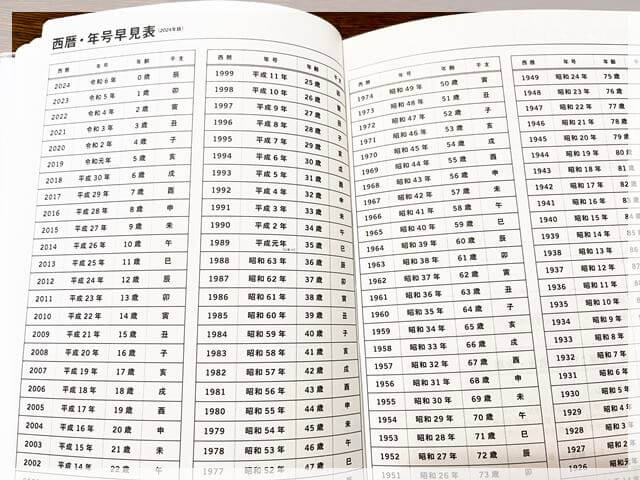 西暦・年号早見表（2024年版）
西暦 年号 年齢 干支
2024 令和6年 0歳 辰
2023 令和5年 1歳 卯
2022 令和4年 2歳 寅
2021 令和3年 3歳 丑
2020 令和2年 4歳 子
2019 令和元年 5歳 亥
2018 平成30年 6歳 戌
2017 平成29年 7歳 酉
2016 平成28年 8歳 申
2015 平成27年 9歳 未
2014 平成26年 10歳 午
2013 平成25年 11歳 巳
2012 平成24年 12歳 辰
2011 平成23年 13歳 卯
2010 平成22年 14歳 寅
2009 平成21年 15歳 丑
2008 平成20年 16歳 子
2007 平成19年 17歳 亥
2006 平成18年 18歳 戌
2005 平成17年 19歳 酉
2004 平成16年 20歳 申
2003 平成15年 21歳 未
2002 平成14年 22歳 午
西暦 年号 年齢 干支
1999 平成11年 25歳 卯
1998 平成10年 26歳 寅
1997 平成9年 27歳 丑
1996 平成8年 28歳 子
1995 平成7年 29歳 亥
1994 平成6年 30歳 戌
1993 平成5年 31歳 酉
1992 平成4年 32歳 申
1991 平成3年 33歳 未
1990 平成2年 34歳 午
1989 平成元年 35歳 巳
1988 昭和63年 36歳 辰
1987 昭和62年 37歳 卯
1986 昭和61年 38歳 寅
1985 昭和60年 39歳 丑
1984 昭和59年 40歳 子
1983 昭和58年 41歳 亥
1982 昭和57年 42歳 戌
1981 昭和56年 43歳 酉
1980 昭和55年 44歳 申
1979 昭和54年 45歳 未
1978 昭和53年 46歳 午
1977 昭和52年 47歳 巳
西暦 年号 年齢 干支
1974 昭和49年 50歳 寅
1973 昭和48年 51歳 丑
1972 昭和47年 52歳 子
1971 昭和46年 53歳 亥
1970 昭和45年 54歳 戌
1969 昭和44年 55歳 酉
1968 昭和43年 56歳 申
1967 昭和42年 57歳 未
1966 昭和41年 58歳 午
1965 昭和40年 59歳 巳
1964 昭和39年 60歳 辰
1963 昭和38年 61歳 卯
1962 昭和37年 62歳 寅
1961 昭和36年 63歳 丑
1960 昭和35年 64歳 子
1959 昭和34年 65歳 亥
1958 昭和33年 66歳 戌
1957 昭和32年 67歳 酉
1956 昭和31年 68歳 申
1955 昭和30年 69歳 未
1954 昭和29年 70歳 午
1953 昭和28年 71歳 巳
1952 昭和27年 72歳 辰
1951 昭和26年 73歳
西暦 年号 年齢
1949 昭和24年 75歳
1948 昭和23年 76歳
1947 昭和22年 77歳
1946 昭和21年 78歳
1945 昭和20年 79歳
1944 昭和19年 80歳
1943 昭和18年 81歳
1942 昭和17年 82歳
1941 昭和16年 83
1940 昭和15年 84
1939 昭和14年 85
1938 昭和13年
1937 昭和12年
1936 昭和11年
1935 昭和10年
1934 昭和9年
1933 昭和8年
1932 昭和7年
1931 昭和6年
1930 昭和5年
1929 昭和4年
1928 昭和3年
1927 昭和2年
1926 昭和元年